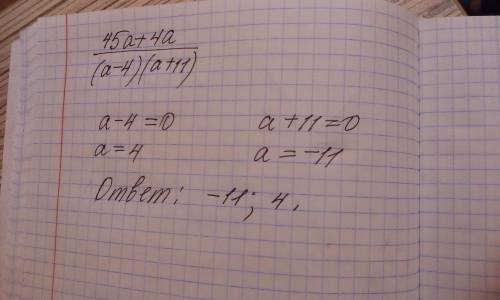 45a+4a
(a-4)(a+11)
a-4=0 a+11=0
a=4 a=-11
Ответ: -11; 4.